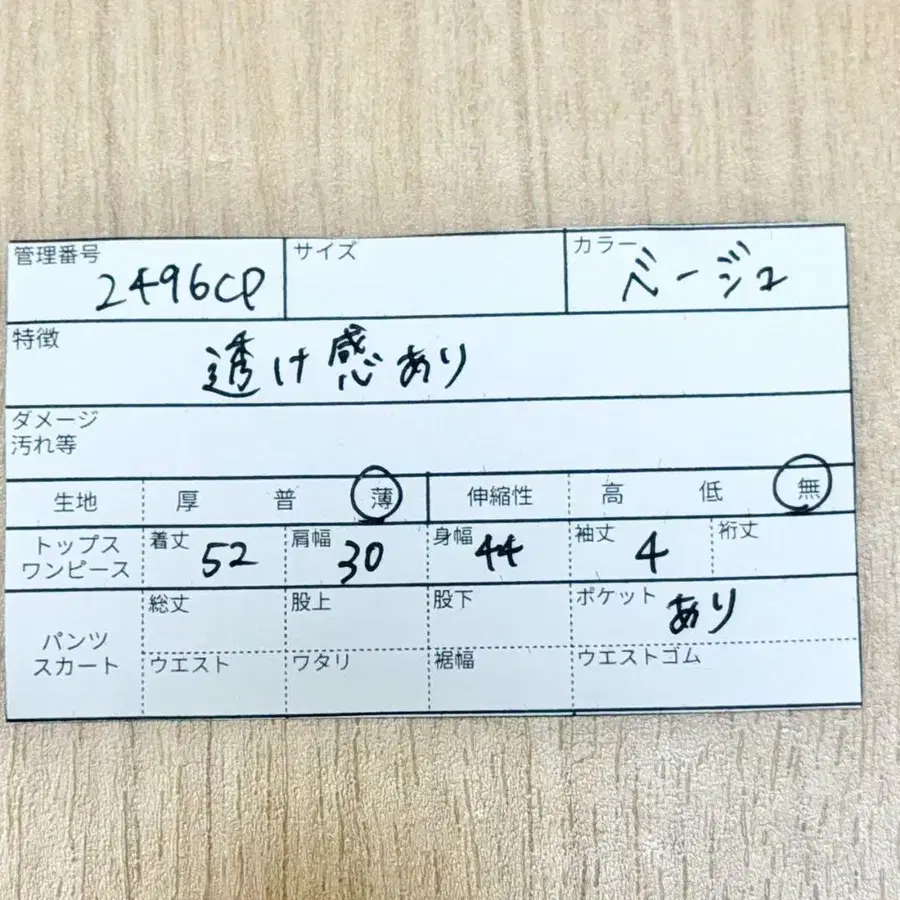 管理番号 2496CP サイズ カラー ベージュ
特徴 透け感あり
ダメージ
汚れ等
生地 厚 普 薄 伸縮性 高 低 無
トップス
ワンピース 着丈 52 肩幅 30 身幅 44 袖丈 4 裄丈
総丈 股上 股下 ポケット あり
パンツ
スカート
ウエスト ワタリ 裾幅 ウエストゴム